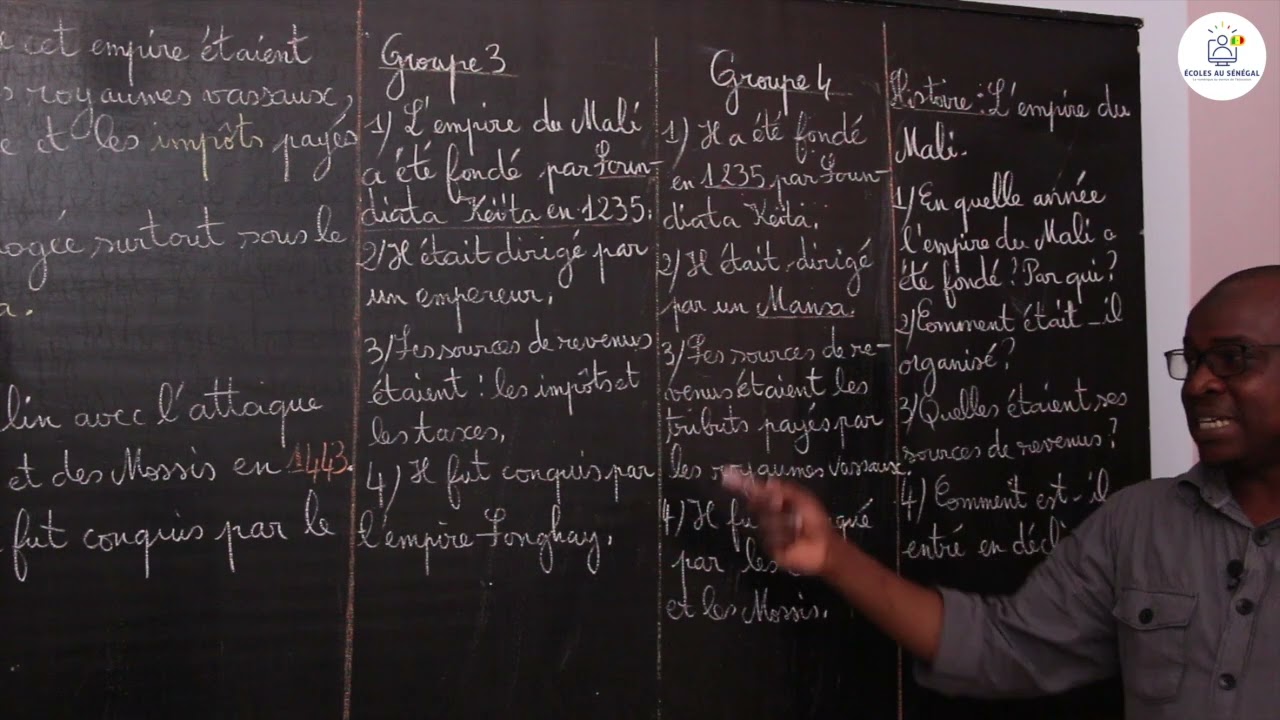 cet empire étaient
royaumes vassaux,
et les impôts payés
ogée surtout sous le
a.
lin avec l'attaque
et des Mossis en 1443.
fut conquis par le
Groupe 3
1) L'empire du Mali
a été fondé par Soun-
diata Keïta en 1235.
2) Il était dirigé par
un empereur.
3) Ses sources de revenus
étaient : les impôts et
les taxes.
4) Il fut conquis par
l'empire Songhay.
Groupe 4
1) Il a été fondé
en 1235 par Soun-
diata Keïta.
2) Il était dirigé
par un Mansa.
3) Ses sources de re-
venus étaient les
tributs payés par
les royaumes vassaux.
4) Il
par les
et les Mossis.
Histoire : L'empire du
Mali.
1) En quelle année
l'empire du Mali a
été fondé ? Par qui ?
2) Comment était-il
organisé ?
3) Quelles étaient ses
sources de revenus ?
4) Comment est-il
entré en décl
ÉCOLES AU SÉNÉGAL